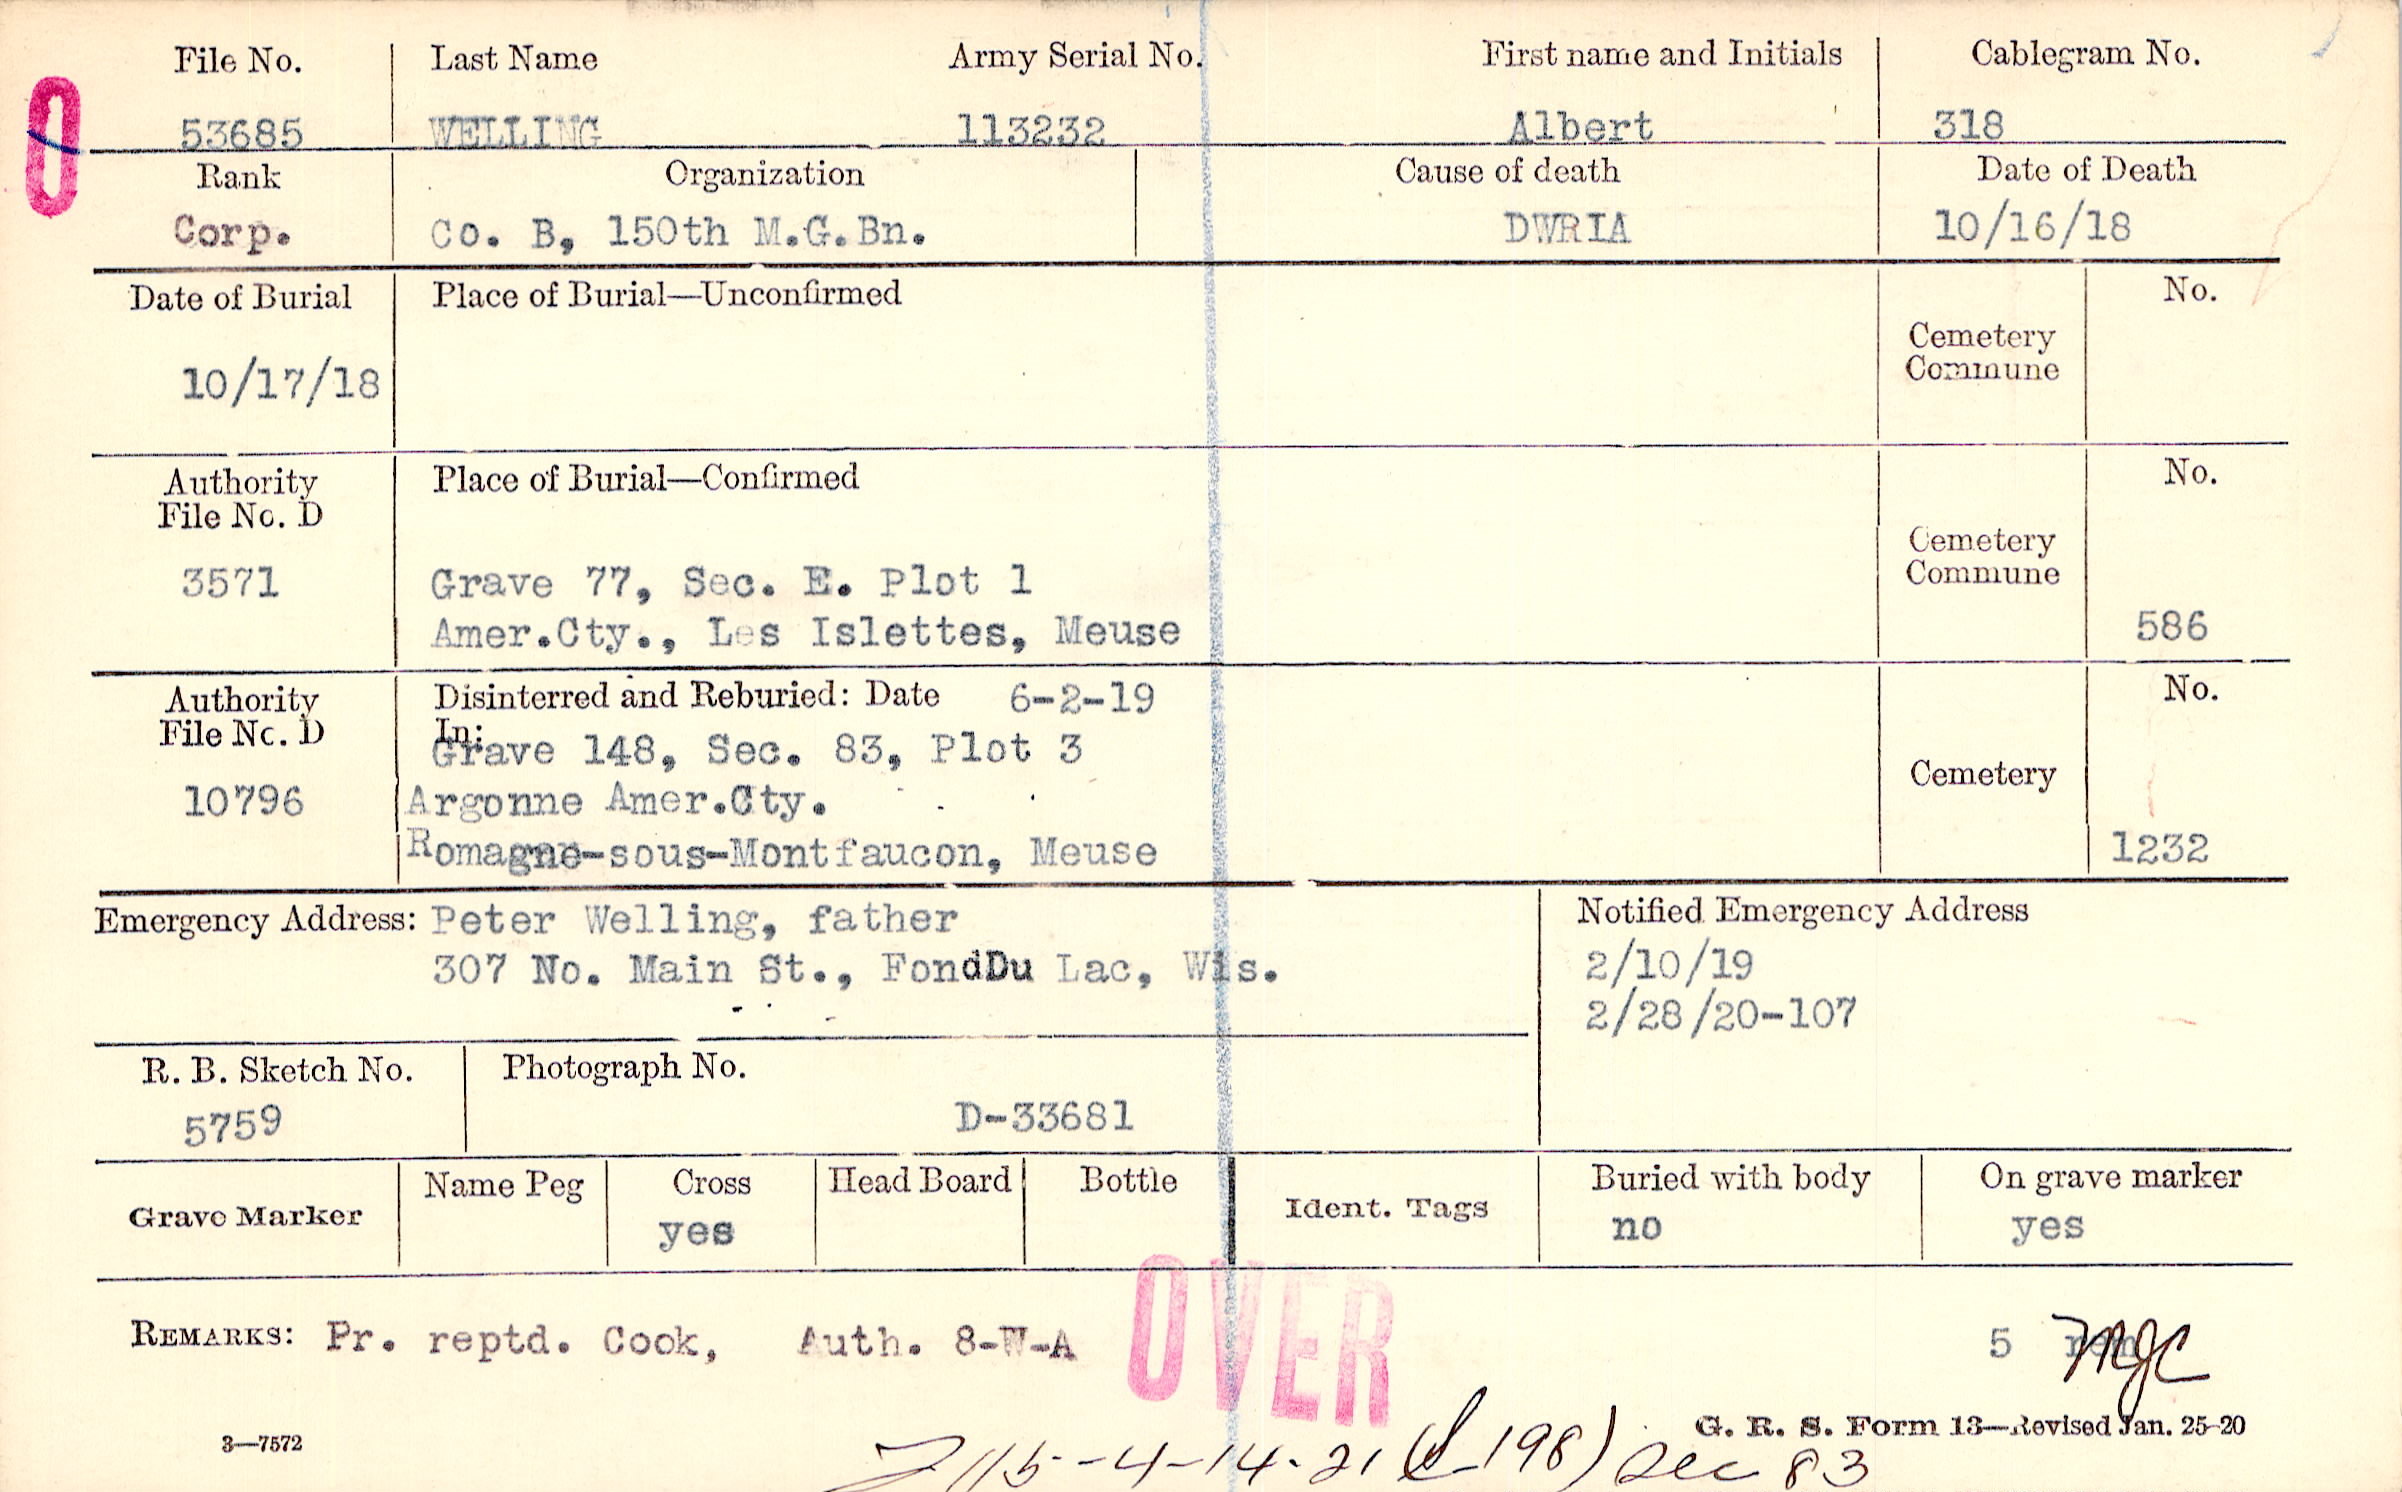 File No. Last Name Army Serial No. First name and Initials Cablegram No.
53685 WELLING 113232 Albert 318
Rank Organization Cause of death Date of Death
Corp. Co. B, 150th M.G.Bn. DWRIA 10/16/18
Date of Burial Place of Burial—Unconfirmed No.
Cemetery
Commune
10/17/18
Authority Place of Burial—Confirmed No.
File No. D
Cemetery
Commune
3571 Grave 77, Sec. E. Plot 1
Amer.Cty., Les Islettes, Meuse 586
Authority Disinterred and Reburied: Date 6-2-19 No.
File No. D In:
Grave 148, Sec. 83, Plot 3
Cemetery
10796 Argonne Amer.Cty.
Romagne-sous-Montfaucon, Meuse 1232
Emergency Address: Peter Welling, father Notified Emergency Address
307 No. Main St., FondDu Lac, Wis. 2/10/19
2/28/20-107
R. B. Sketch No. Photograph No.
5759 D-33681
Grave Marker Name Peg Cross Head Board Bottle Ident. Tags Buried with body On grave marker
yes no yes
OVER
REMARKS: Pr. reptd. Cook, Auth. 8-W-A 5 MJC
3—7572 G. R. S. Form 13—Revised Jan. 25-20
115-4-14-21 198) Sec 83